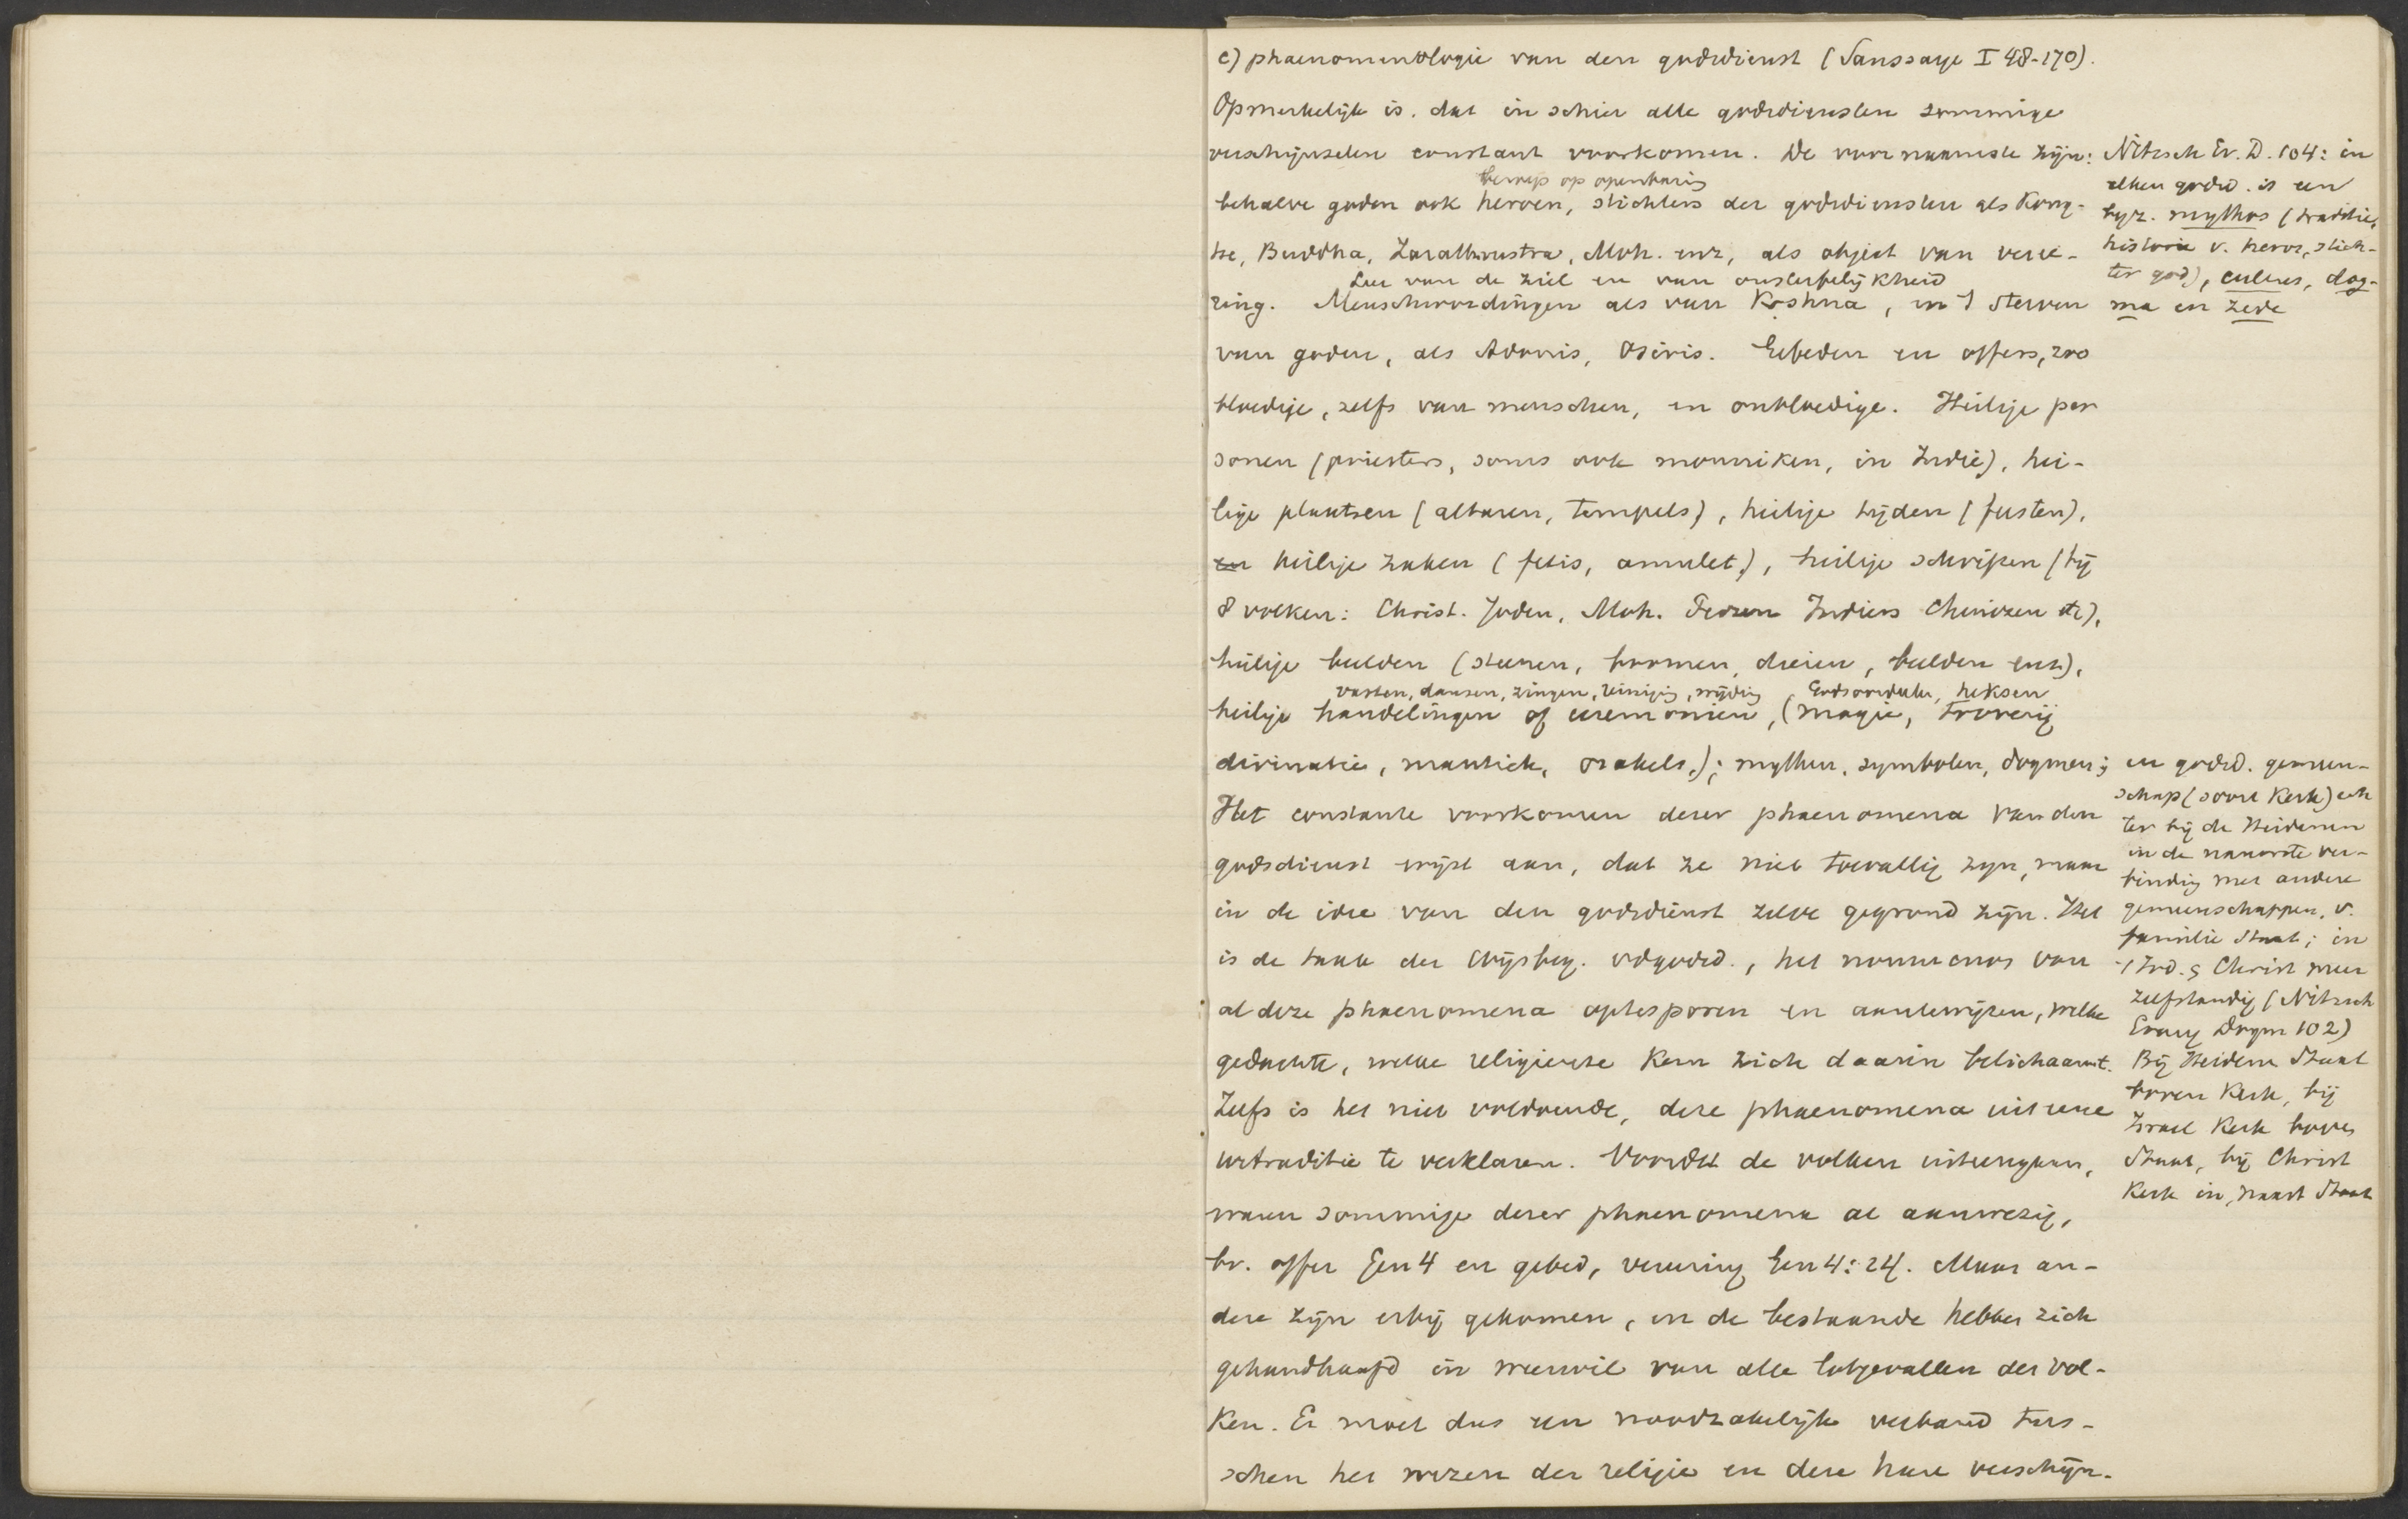 c) phaenomenologie van den godsdienst (Saussaye I 48-170).
Opmerkelijk is, dat in schier alle godsdiensten sommige
verschijnselen constant voorkomen. De voornaamste zijn:
beroep op openbaring
behalve goden ook heroen, stichters der godsdiensten als Kong-
tse, Buddha, Zarathrustra, Moh. enz, als object van veree-
Leer van de ziel en van onsterfelijkheid
ring. Menschwordingen als van Krshna, en 't sterven
van goden, als Adonis, Osiris. Gebeden en offers, zoo
bloedige, zelfs van menschen, en onbloedige. Heilige per
sonen (priesters, soms ook monniken, in Indië), hei-
lige plaatsen (altaren, tempels), heilige tijden (feesten),
en heilige zaken (fetis, amulet), heilige schriften (bij
8 volken: Christ. Joden, Moh. Perzen Indiers Chinezen etc),
heilige beelden (steenen, boomen, dieren, beelden enz),
vasten, dansen, zingen, reiniging, wijding Godsoordeelen, heksen
heilige handelingen of ceremonien, (magie, tooverij
divinatie, mantiek, orakels.); mythen, symbolen, dogmen;
Het constante voorkomen dezer phaenomena van den
godsdienst wijst aan, dat ze niet toevallig zijn, maar
in de idee van den godsdienst zelve gegrond zijn. Het
is de taak der Wijsbeg. vdgodsd., het noumenos van
al deze phaenomena optesporen en aantewijzen, welke
gedachte, welke religieuse kern zich daarin belichaamt.
Zelfs is het niet voldoende, deze phaenomena uit eene
urtraditie te verklaren. Voordat de volken uiteengaan,
waren sommige dezer phaenomena al aanwezig,
bv. offer Gen 4 en gebed, vereering Gen 4:24. Maar an-
dere zijn erbij gekomen, en de bestaande hebben zich
gehandhaafd in weerwil van alle lotgevallen der vol-
ken. Er moet dus een noodzakelijk verband tus-
schen het wezen der religie en deze hare verschijn-
Nitzsch Ev. D. 104: in
elken godsd. is een
byz. mythos (traditie,
historie v. heros, stich-
ter god), cultus, dog-
ma en zede
en godsd. gemeen-
schap (soort Kerk) ech
ter bij de Heidenen
in de nauwste ver-
binding met andere
gemeenschappen, v.
familie Staat; in
't Jod. & Christ meer
zelfstandig (Nitzsch
Evang Dogm 102)
Bij Heidenen Staat
boven Kerk, bij
Israel Kerk boven
Staat, bij Christ
Kerk in, naast Staat